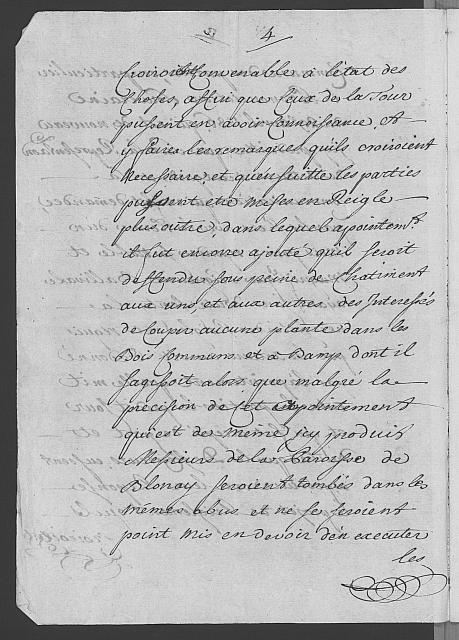 4
croiroient Convenable a l'état des
Choses, affin que Ceux de la Tour
pussent en avoir Connoissance, et
y faires les remarques quils croiroient
Necessaire, et qu'en suitte les parties
pussent etre Mises en Reigle
plus outre, dans lequel apointemt.
il fut encore ajouté quil seroit
deffendu sous peine de Chatiment
aux uns, et aux autres des Interessés
de Couper aucune plante dans les
Bois Communs et a Bamp dont il
sagissoit alors, que malgré la
precision de Cet Apointement
qui est de meme icy produit
Messieurs de la Paroisse de
Blonay seroient tombés dans les
mêmes abus et ne se seroient
point mis en devoir d'en executer
les